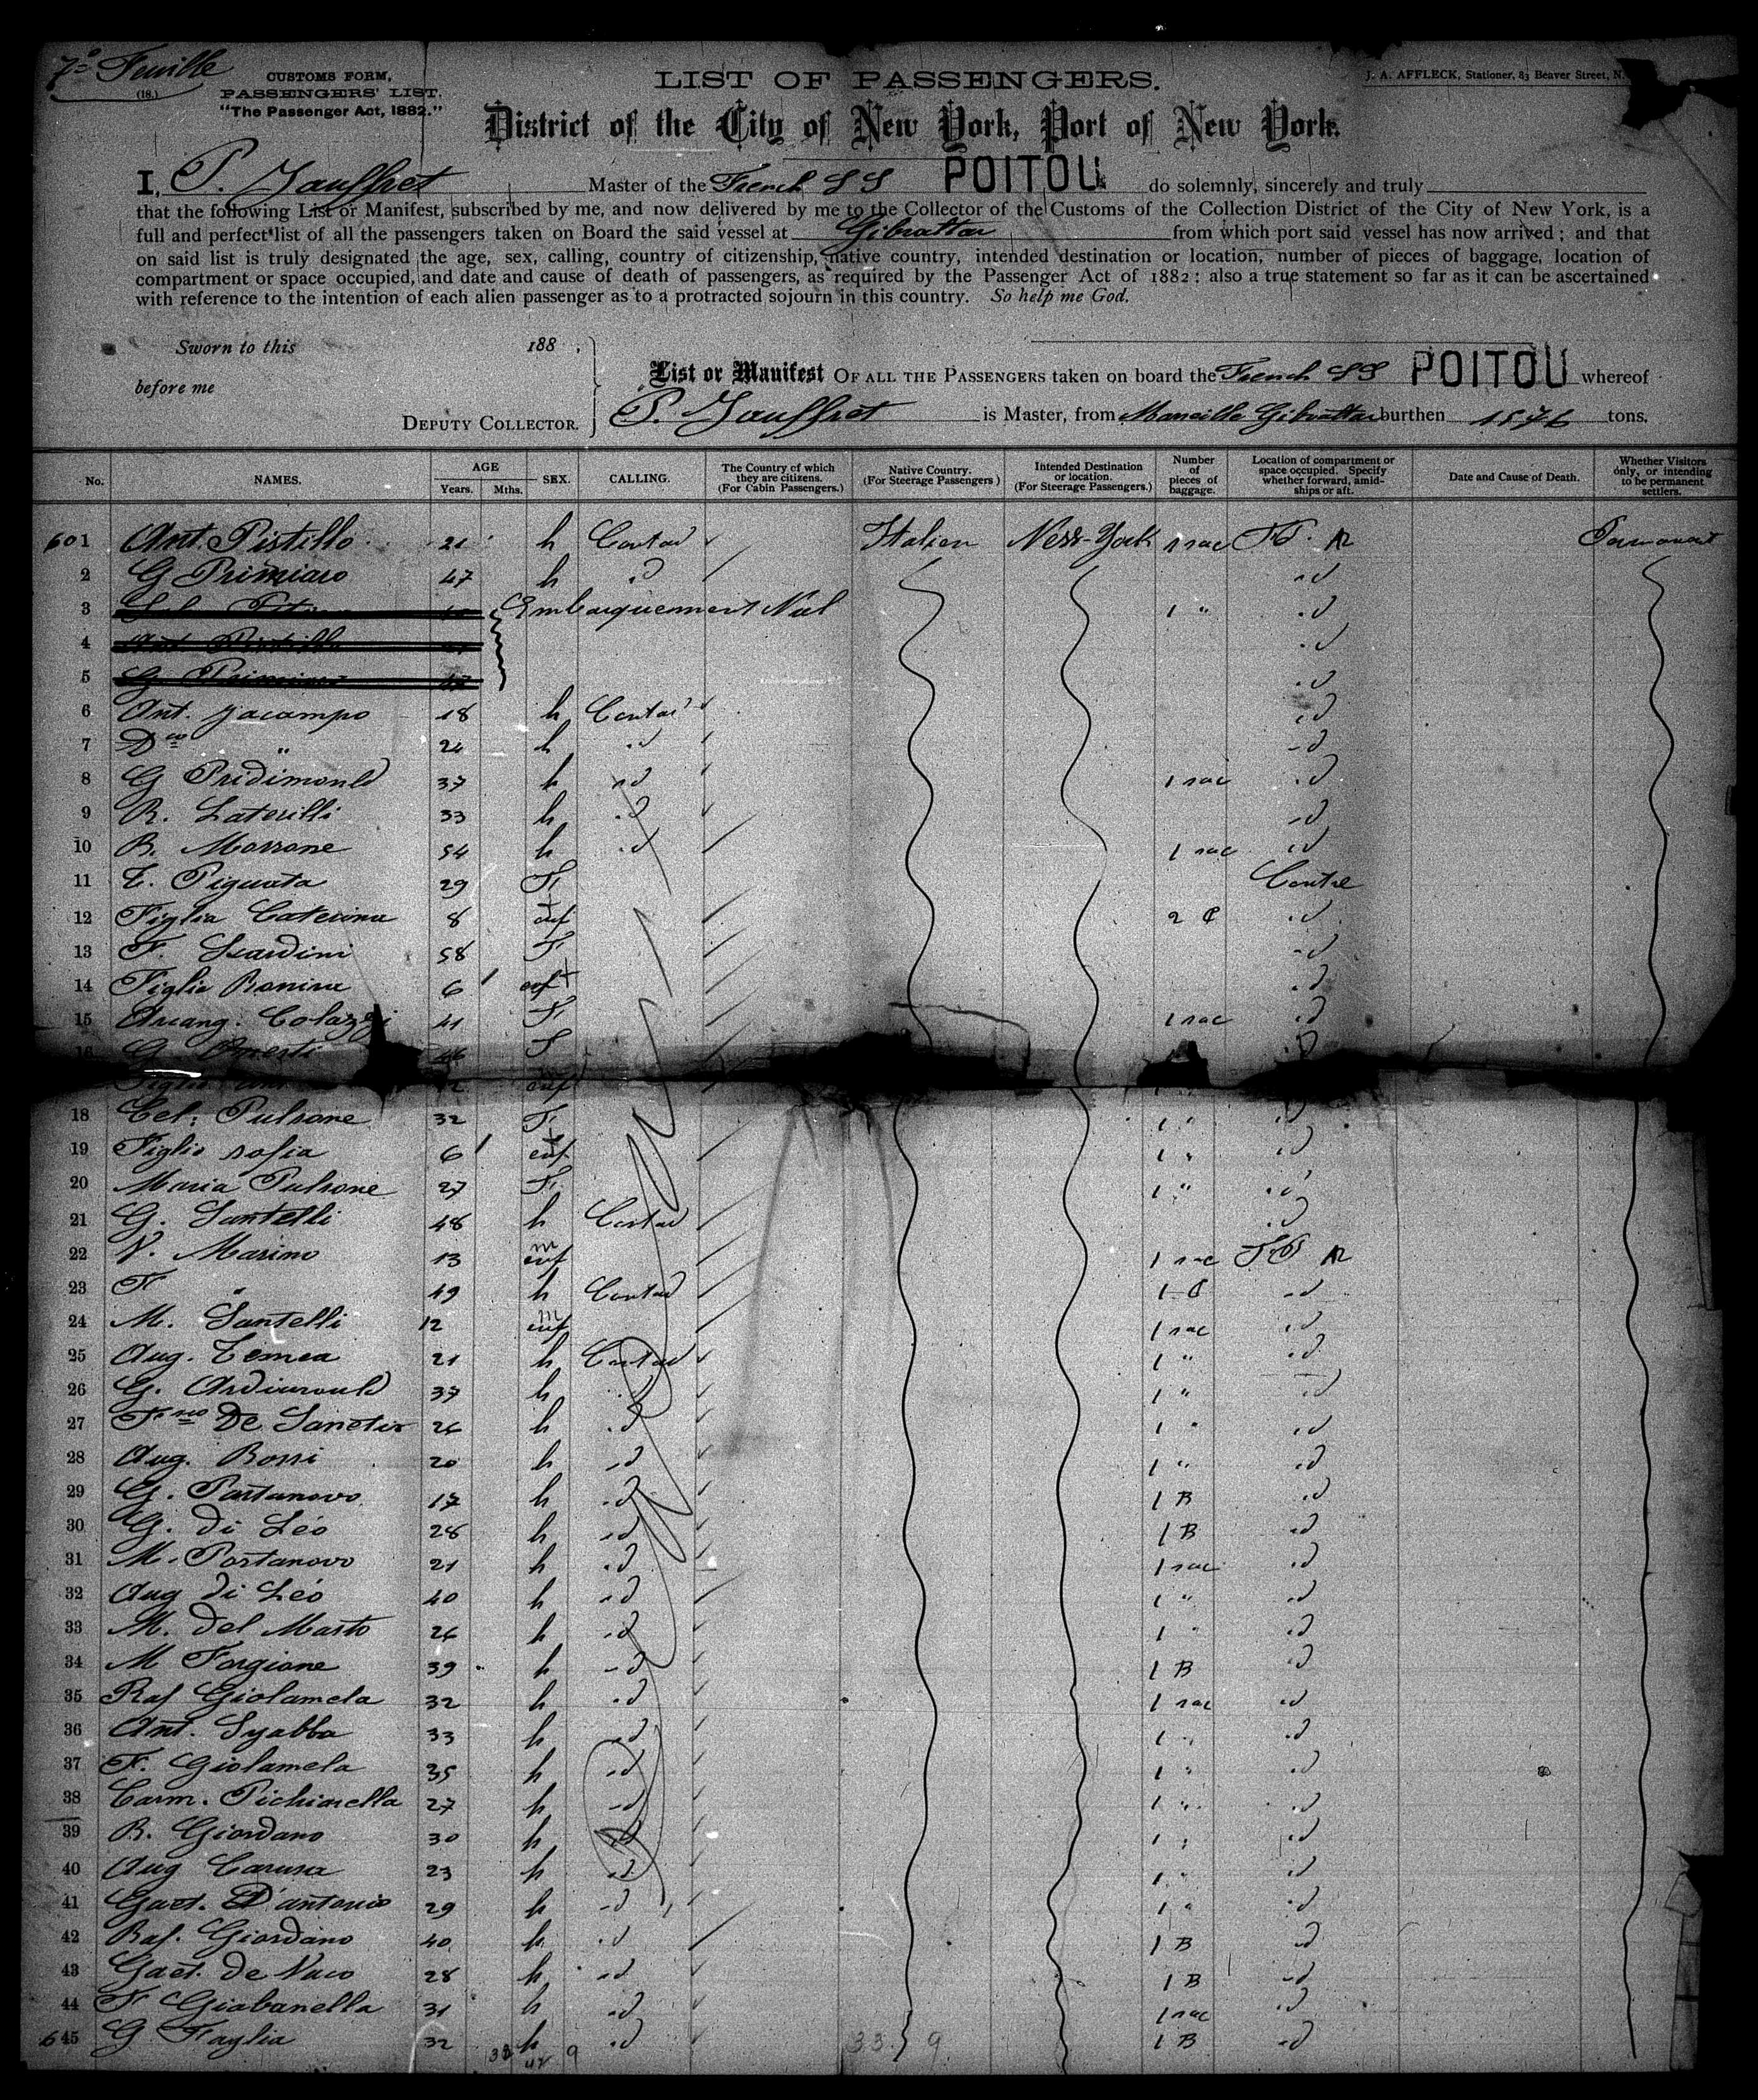 7º Feuille
CUSTOMS FORM,
(18.) PASSENGERS' LIST.
"The Passenger Act, 1882."
LIST OF PASSENGERS.
J. A. AFFLECK, Stationer, 83 Beaver Street, N.
District of the City of New York, Port of New York.
I, P. Jauffret Master of the French SS POITOU do solemnly, sincerely and truly
that the following List or Manifest, subscribed by me, and now delivered by me to the Collector of the Customs of the Collection District of the City of New York, is a
full and perfect list of all the passengers taken on Board the said vessel at Gibraltar from which port said vessel has now arrived; and that
on said list is truly designated the age, sex, calling, country of citizenship, native country, intended destination or location, number of pieces of baggage, location of
compartment or space occupied, and date and cause of death of passengers, as required by the Passenger Act of 1882: also a true statement so far as it can be ascertained
with reference to the intention of each alien passenger as to a protracted sojourn in this country. So help me God.
Sworn to this 188 .
before me
DEPUTY COLLECTOR.
List or Manifest OF ALL THE PASSENGERS taken on board the French SS POITOU whereof
P. Jauffret is Master, from Marseille Gibraltar burthen 1576 tons.
No. NAMES. AGE Years. Mths. SEX. CALLING. The Country of which they are citizens. (For Cabin Passengers.) Native Country. (For Steerage Passengers) Intended Destination or location. (For Steerage Passengers.) Number of pieces of baggage. Location of compartment or space occupied. Specify whether forward, amidships or aft. Date and Cause of Death. Whether Visitors only, or intending to be permanent settlers.
601 Ant. Pistillo 21 h Contad Italien New-York 1 sac Permanent
2 G Primiano 47 h id id
3 Embarquement Nul 1 " id
4 id
5 id
6 Ant. Jacampo 18 h Contad id
7 Dco " 24 h id id
8 G Pridimonld 37 h id 1 sac id
9 R. Laterilli 33 h id id
10 B. Morrone 54 h id 1 sac id
11 T. Pignata 29 F Centre
12 Figlia Caterina 8 enf 2 C id
13 F. Scardini 58 F id
14 Figlia Ronina 6 enf id
15 Arcang. Colazzi 41 F 1 sac id
16 G. 46 F id
Figlio enf
18 Cel: Pulsone 32 F 1 " id
19 Figlia sofia 6 enf 1 " id
20 Maria Pulsone 27 F 1 " id
21 G. Santelli 48 h Contad id
22 V. Marino 13 m enf 1 sac
23 F " 49 h Contad 1 C id
24 M. Santelli 12 m enf 1 sac id
25 Aug. Temea 21 h Contad 1 " id
26 G. Ardimonld 37 h id 1 " id
27 Fsco De Sanctis 26 h id 1 " id
28 Aug. Rossi 20 h id 1 " id
29 G. Portanovo 17 h id 1 B id
30 G. di Léo 28 h id 1 B id
31 M. Portanovo 21 h id 1 sac id
32 Aug di Léo 40 h id 1 " id
33 M. del Masto 26 h id 1 " id
34 M Forgione 39 h id 1 B id
35 Raf Giolamela 32 h id 1 sac id
36 Ant. Syabba 33 h id 1 " id
37 F. Giolamela 35 h id 1 " id
38 Carm. Pichiarella 27 h id 1 " id
39 R. Giordano 30 h id 1 " id
40 Aug Carusa 23 h id 1 " id
41 Gaet. D'antonio 29 h id 1 " id
42 Raf. Giordano 40 h id 1 B id
43 Gaet. de Vuco 28 h id 1 B id
44 F Giabanella 31 h id 1 sac id
645 G Faglia 32 h id 1 B id
33 9 33 9